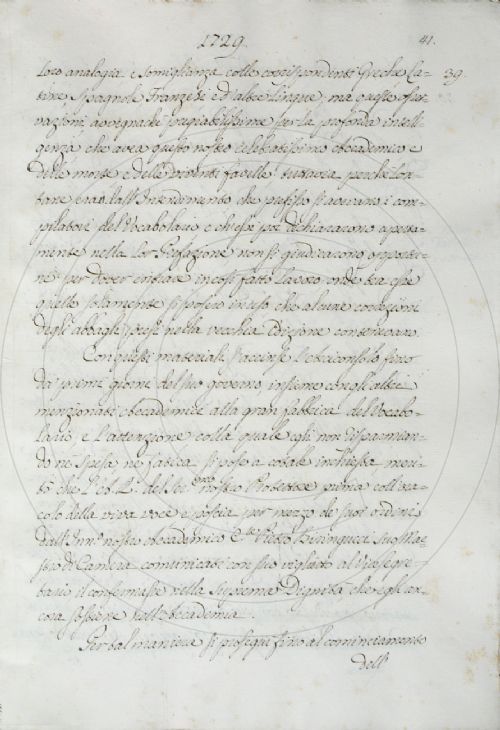 1729.
41.
39.
loro analogia e somiglianza colle corrispondenti Greche La-
tine Spagnole Franzesi e d'altre lingue; ma queste osser-
vazioni, avvegnachè pregiabilissime per la profonda intelli-
genza, che avea questo nostro celebratissimo Accademico e
delle morte e delle viventi favelle tuttavia perchè lon-
tane erano dall'Intendimento che prefisso si avevano i com-
pilatori del Vocabolario e ch'essi poi dichiararono aperta-
mente nella lor Prefazione non si giudicarono opportu-
ne per dover entrare in così fatto lavoro onde tra esse
quelle solamente si posero in uso che alcune correzioni
degli abbagli presi nella vecchia Edizione contenevano.
Con questi materiali s'accinse l'Arciconsolo fino
da' primi giorni del suo governo, insieme cogli altri
menzionati Accademici alla gran fabbrica del Vocabo-
lario, e l'attenzione colla quale egli non risparmian-
do nè spesa nè fatica si pose a cotale inchiesta meri-
tò che l'A. R. del Ser.mo nostro Protettore prima coll'ora-
colo della viva voce e poscia per mezzo de' suoi ordini
dall'Inn.to nostro Accademico Pietro Biringucci suo Mae-
stro di Camera comunicati con suo viglietto al Vicesegre-
tario il confermasse nella suprema Dignità che egli an-
cora sostiene nell'Accademia.
Per tal maniera si proseguì fino al cominciamento
dell'